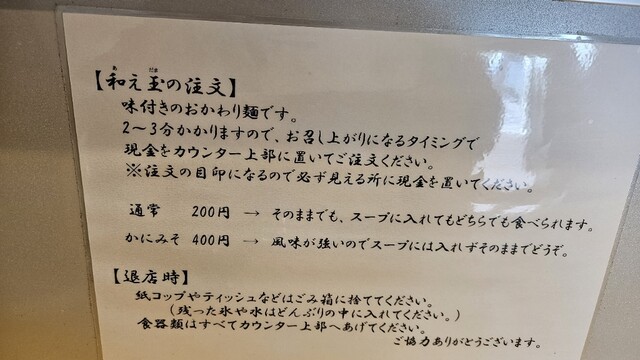 【和え玉の注文】
味付きのおかわり麺です。
2〜3分かかりますので、お召し上がりになるタイミングで
現金をカウンター上部に置いてご注文ください。
※注文の目印になるので必ず見える所に現金を置いてください。
通常 200円 → そのままでも、スープに入れてもどちらでも食べられます。
かにみそ 400円 → 風味が強いのでスープには入れずそのままでどうぞ。
【退店時】
紙コップやティッシュなどはごみ箱に捨ててください。
(残った氷や水はどんぶりの中に入れてください。)
食器類はすべてカウンター上部へあげてください。
ご協力ありがとうございます。